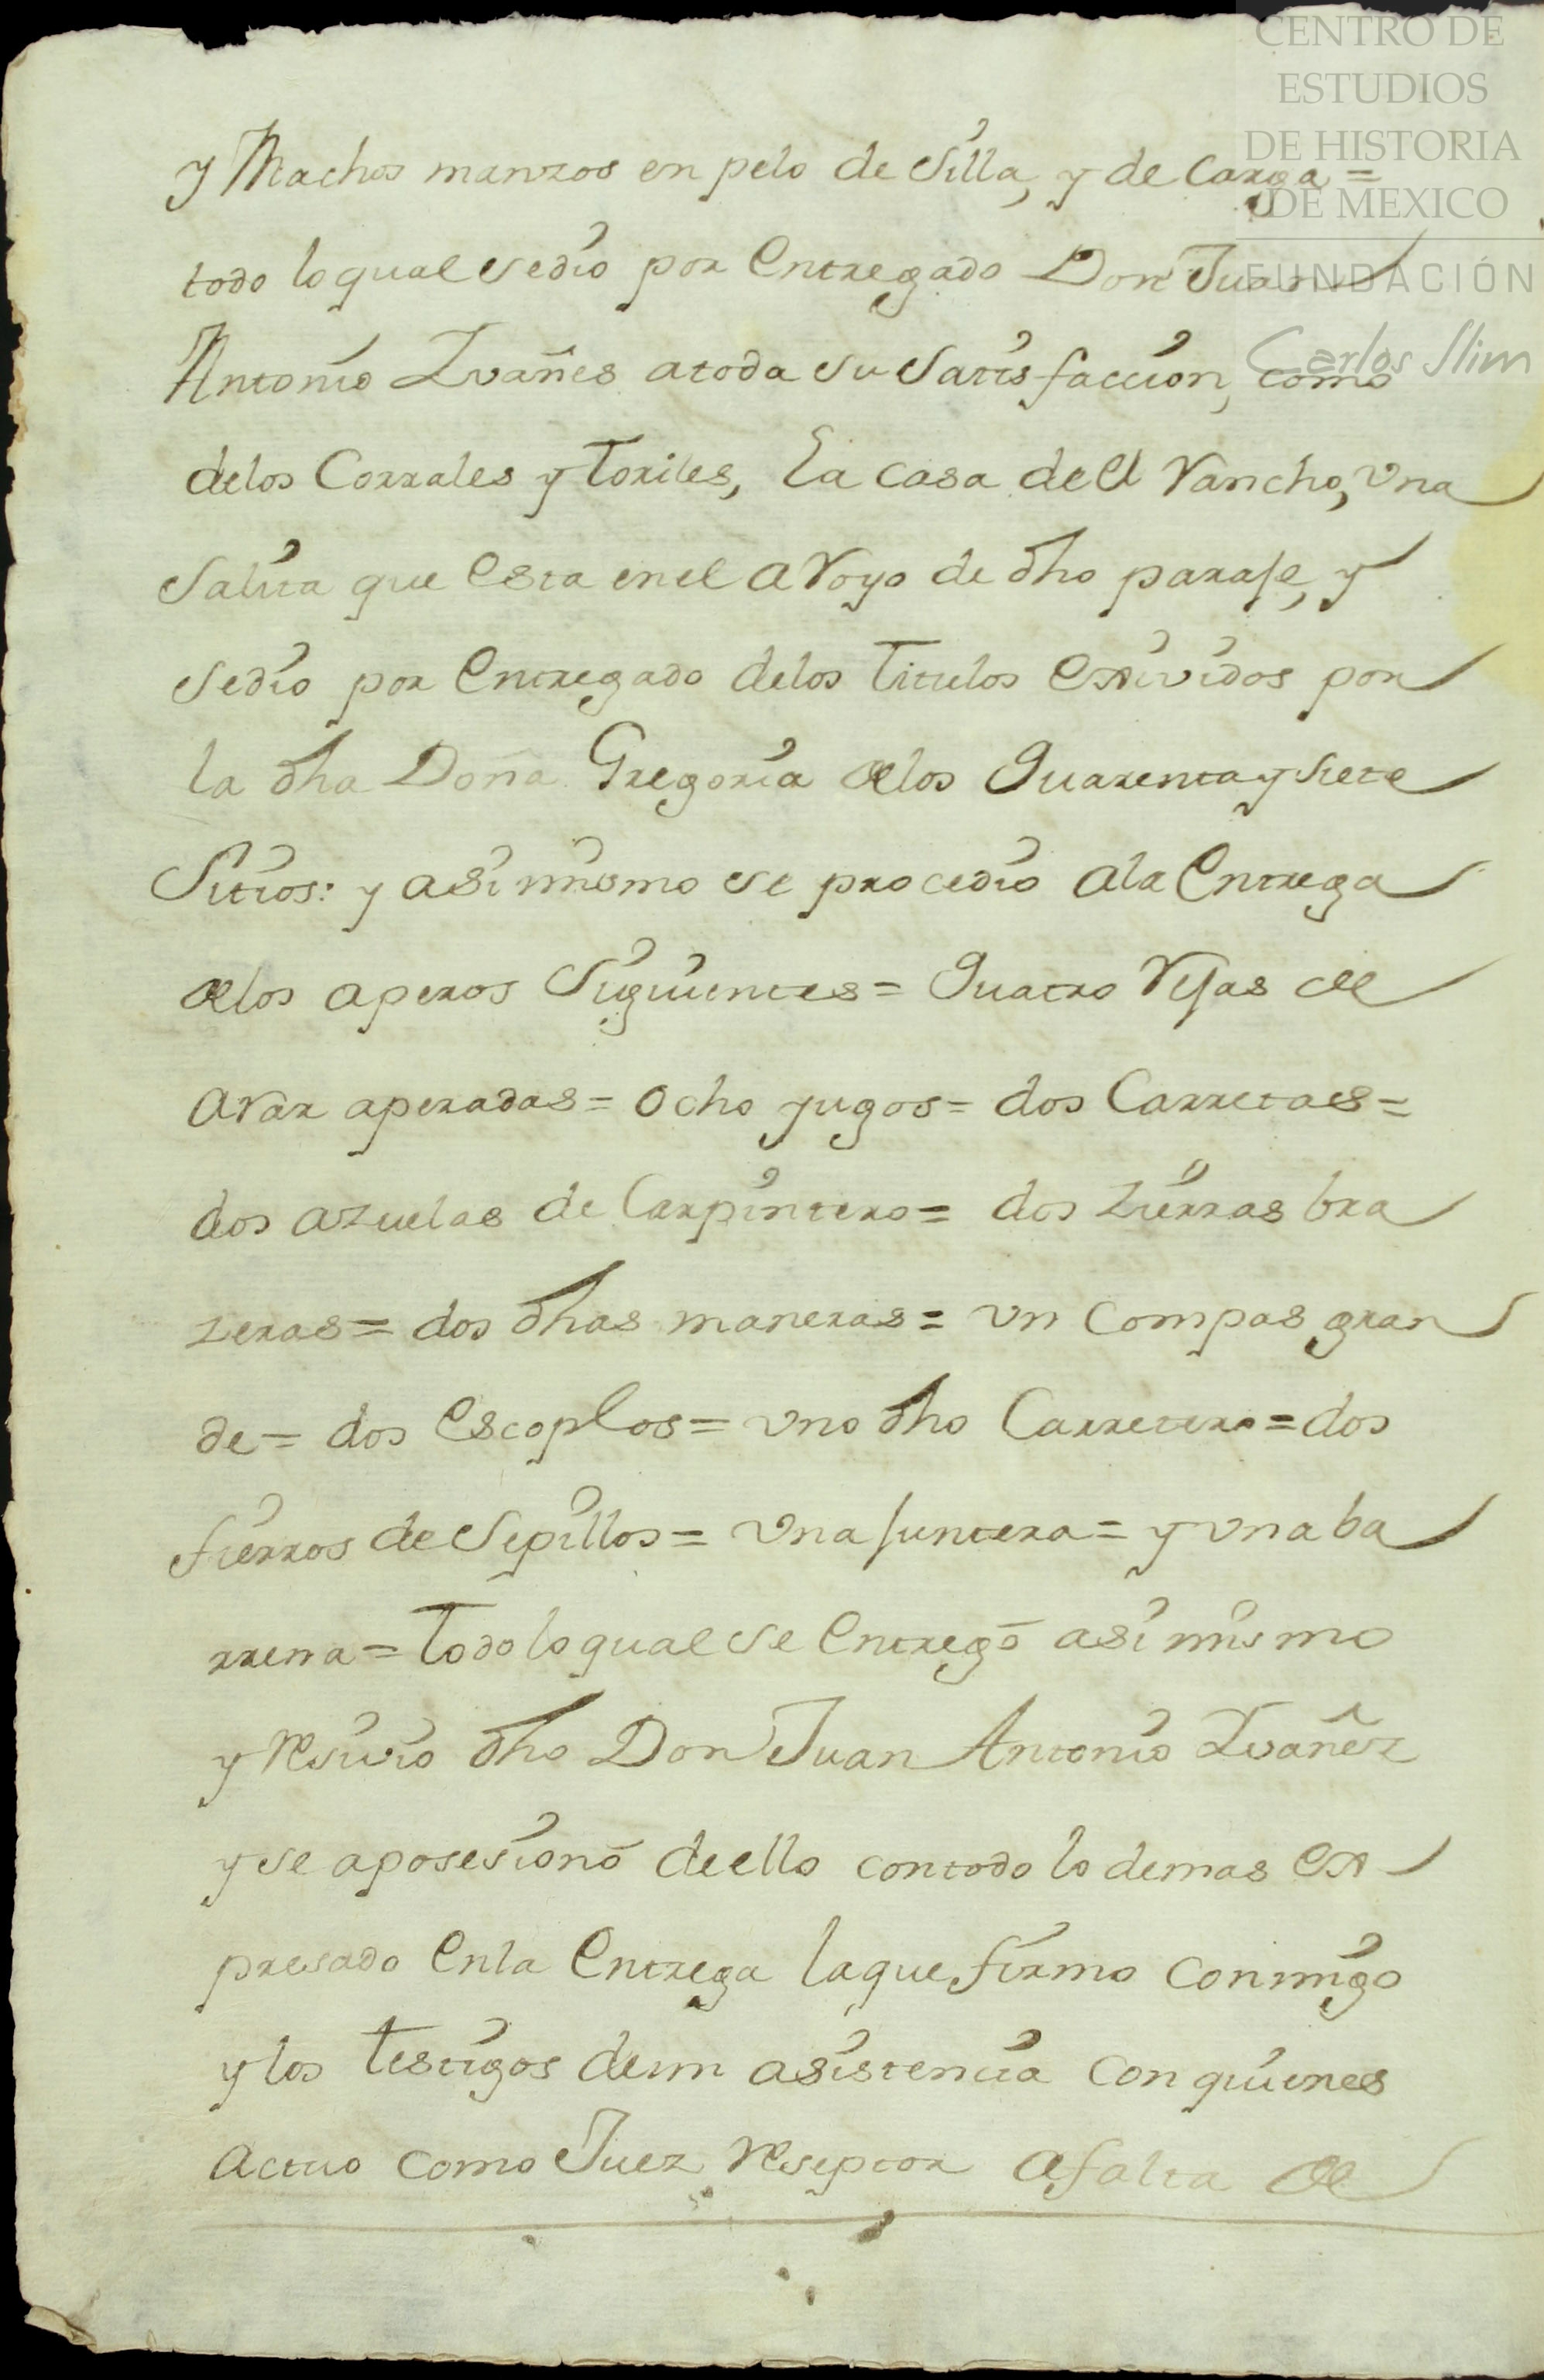 CENTRO DE
ESTUDIOS
DE HISTORIA
DE MEXICO
FUNDACIÓN
Carlos Slim
y Machos manzos en pelo de silla, y de Carga =
todo lo qual se dio por Entregado Don Juan
Antonio Yvañes a toda su satisfaccion, como
delos Corrales y toriles, la casa de el Rancho, vna
salita que esta en el aRoyo de dho paraje, y
se dio por Entregado delos titulos Exividos por
la dha Doña Gregoria delos Quarenta y siete
Sitios: y asi mismo se procedio ala Entrega
delos aperos siguientes = Quatro Rejas de
aRar aperadas = Ocho yugos = dos Carretas =
dos azuelas de Carpintero = dos zierras bra
zeras = dos dhas maneras = vn compas gran
de = dos Escoplos = vno dho Carretero = dos
fierros de sepillos = vna juntera = y vna ba
rrena = todo lo qual se Entregó asi mismo
y resivio dho Don Juan Antonio Yvañez
y se aposesionó de ello con todo lo demas Ex-
presado En la Entrega la que firmo conmigo
y los testigos de mi asistencia con quienes
Actuo como Juez reseptor a falta de